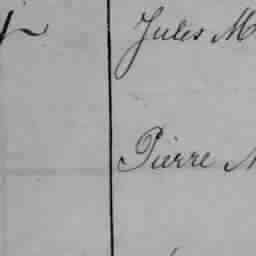 Jules M
Pierre